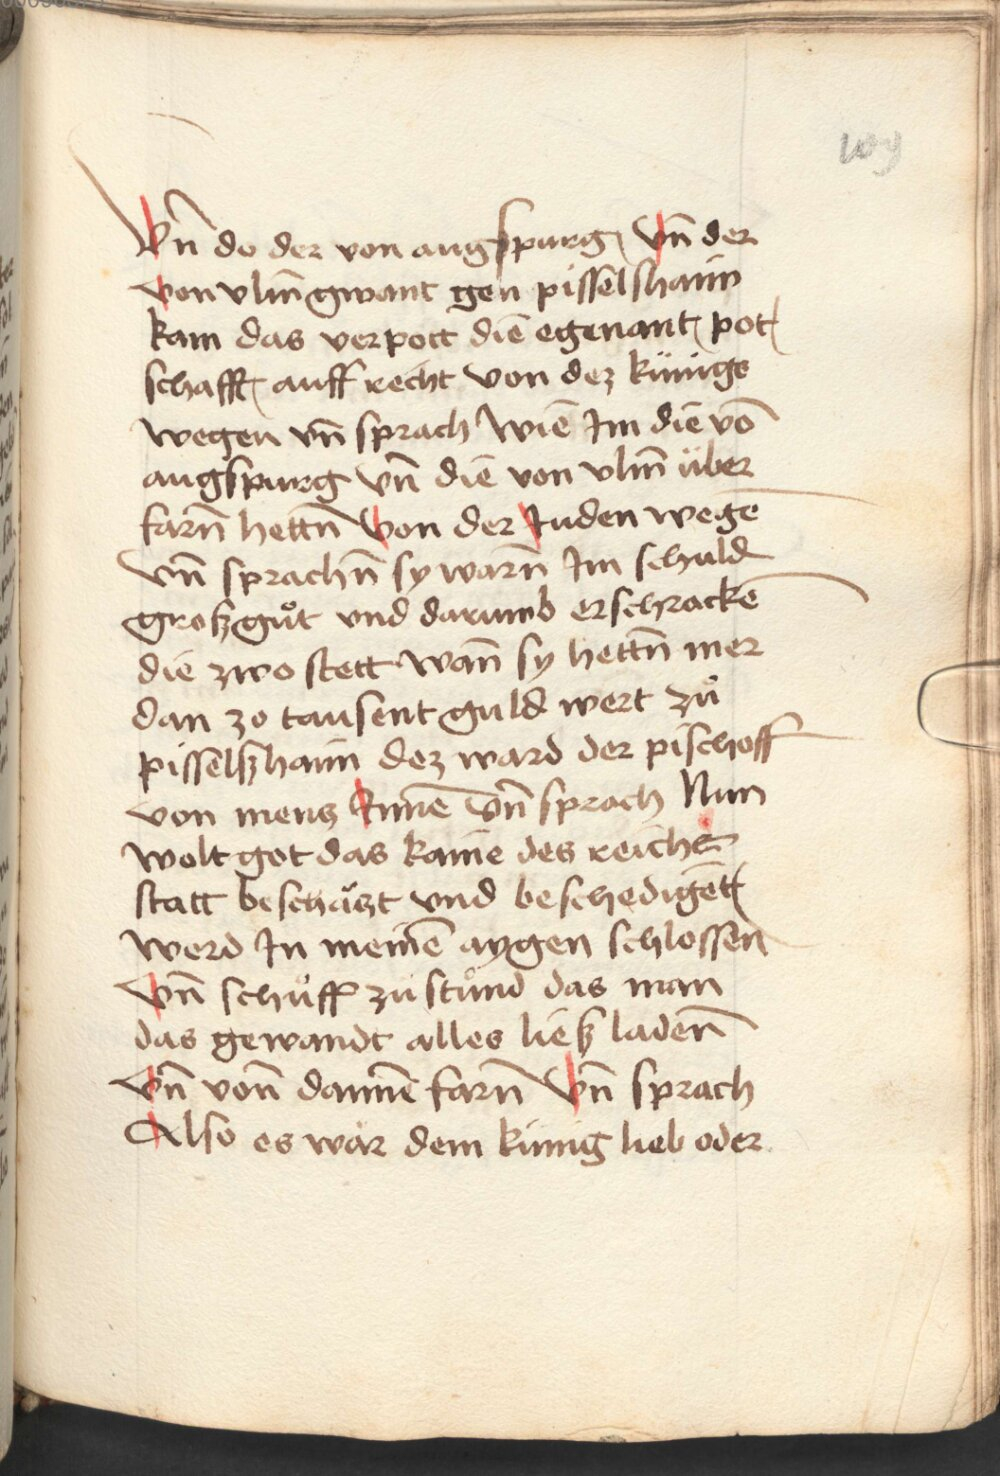 109
Vn̄ do der von augspurg Vn̄ der
von vlm̄ gwant gen pisselshaim
kam das verpott die egenant pot
schafft auff recht von dez künigs
wegen vn̄ sprach Wie Im die vō
augspurg Vn̄ die von vlm̄ über
farn̄ hettn̄ Von der Juden wegē
Vn̄ sprachn̄ sy warn̄ Im schuld
groß guͦt vnd darumb erschrackē
die zwo stett wan̄ sy hettn̄ mer
dan 30 tausent guld wert zuͦ
pisselßhaim dez ward der pischoff
von mentz Innē Vn̄ sprach Nun
wolt got das kaine des reichs
statt beschätzt vnd beschedigett
werd In meinē aygen schlossen
Vn̄ schuͦff zu stuͦnd das man
das gewandt alles ließ laden̄
Vn̄ von̄ dannē farn̄ Vn̄ sprach
Also es wär dem künig lieb oder